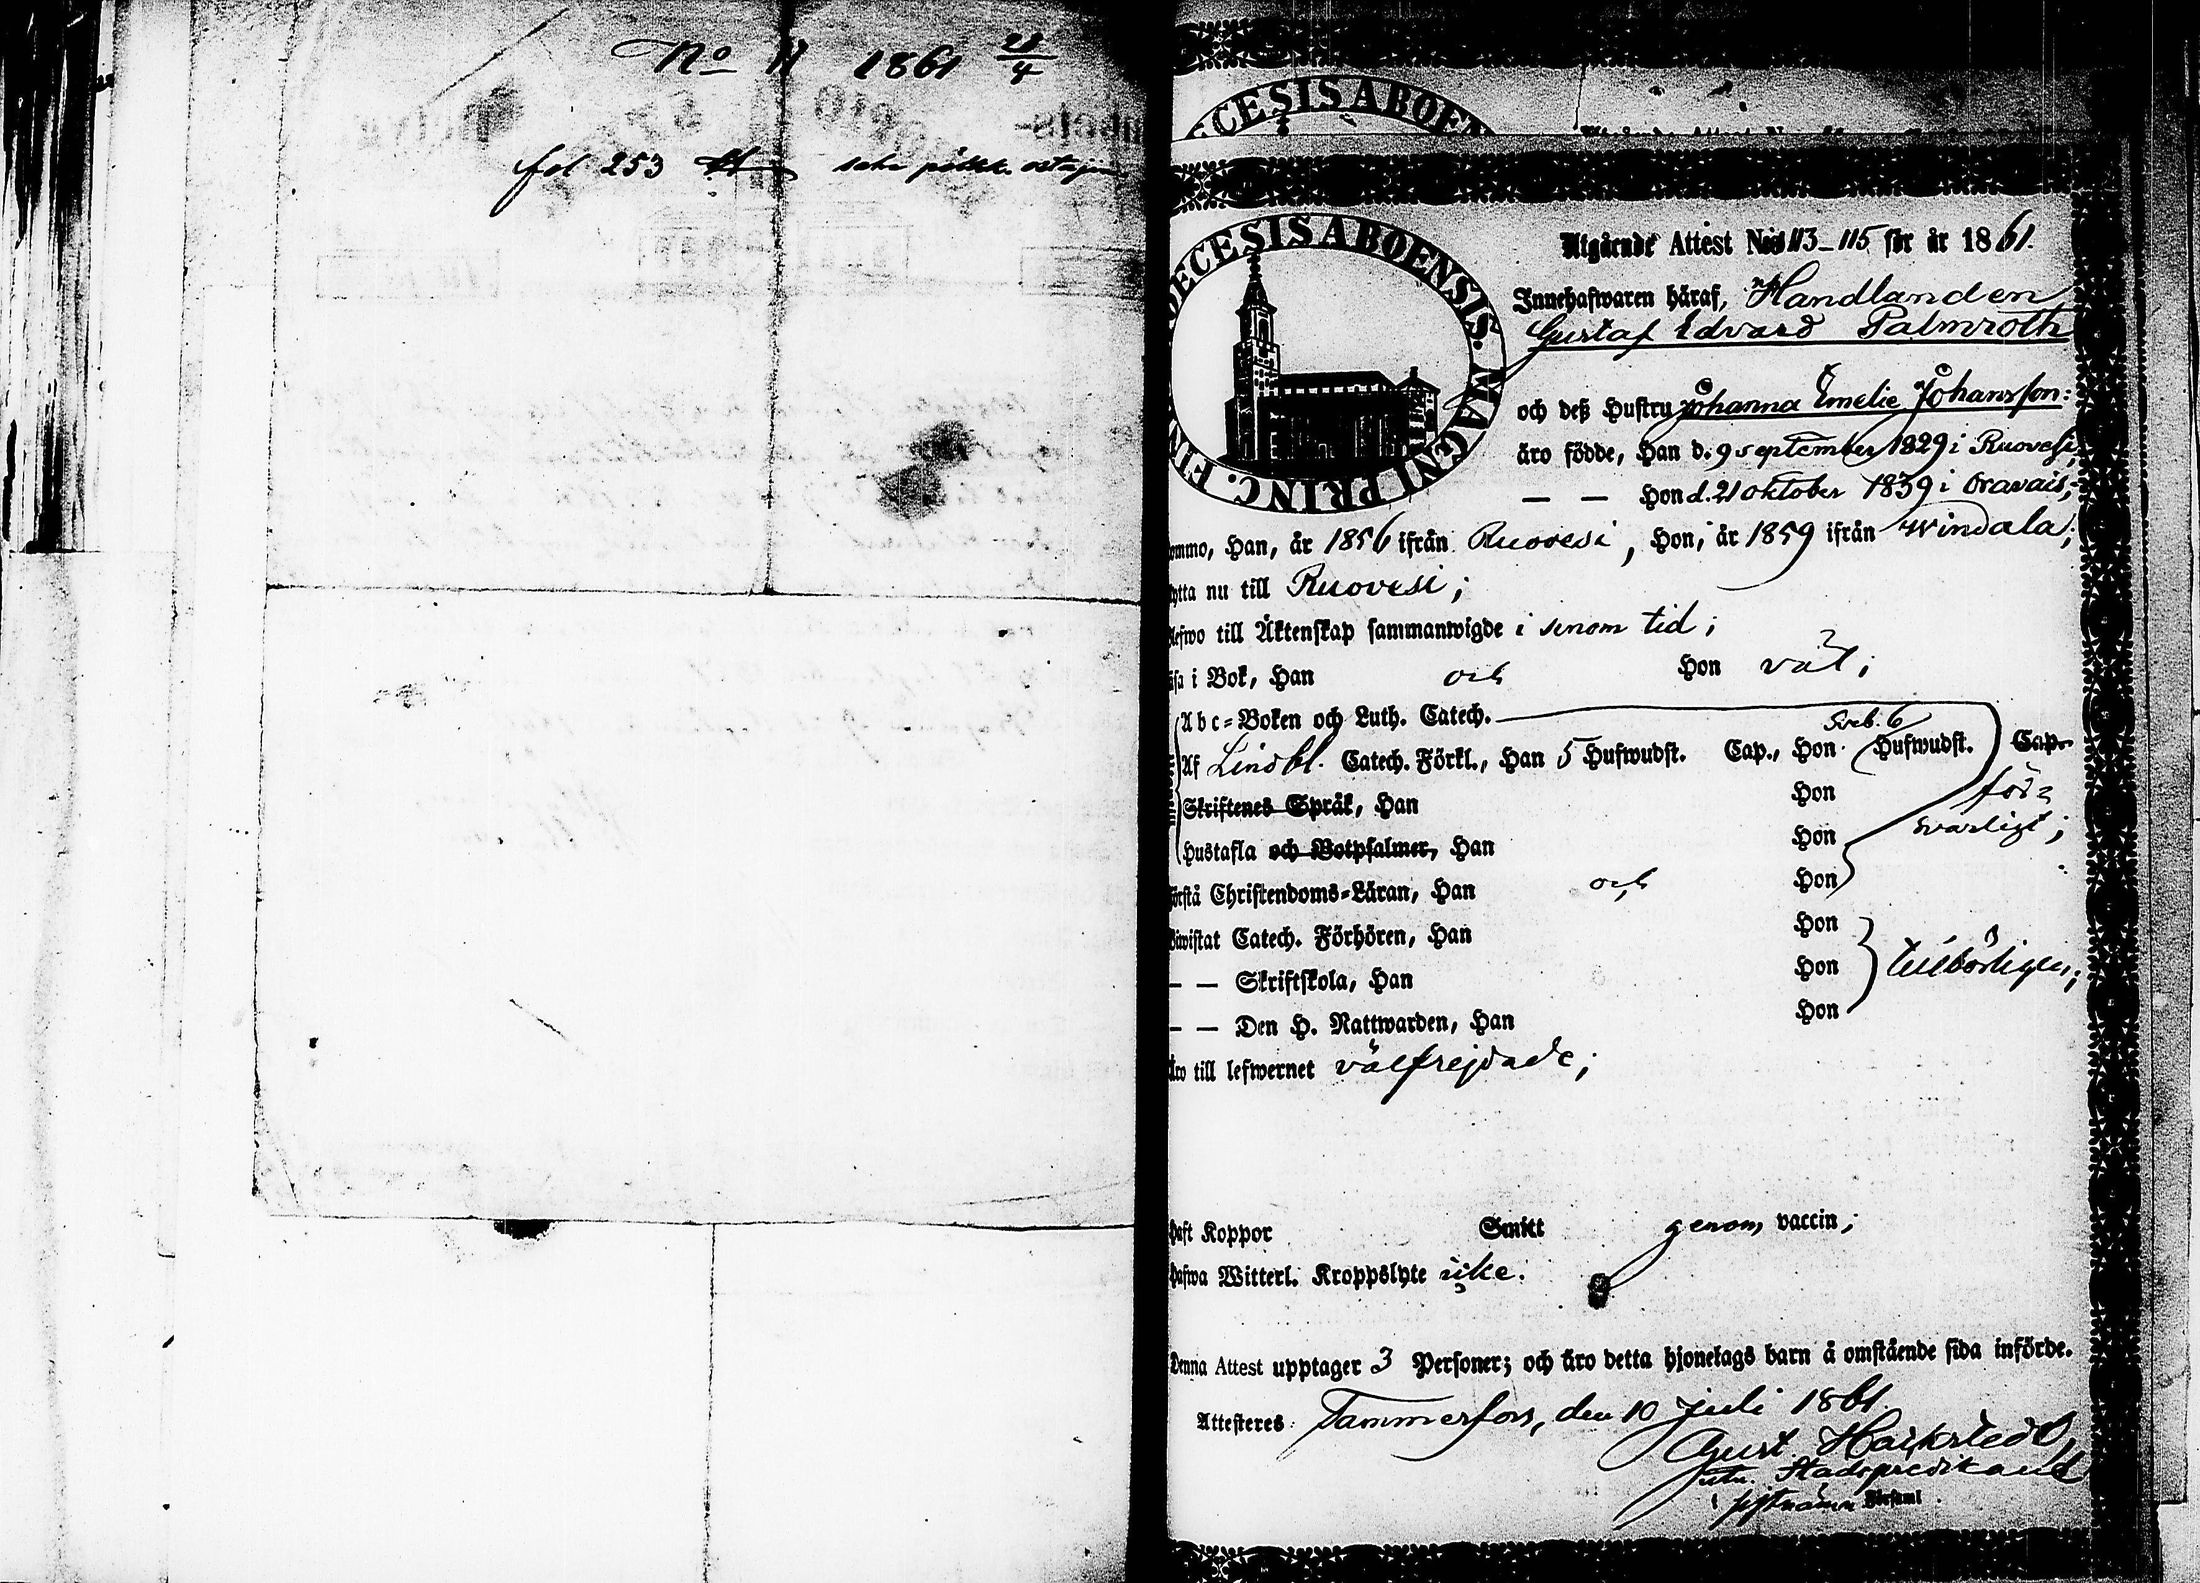 No 11 1861 28/4
fol 253
DIOECESIS ABOENSIS
DIOECESIS ABOENSIS. MAGNI PRINC. FINL.
Utgående Attest N:o 113–115 för år 1861.
Innehafwaren häraf, Handlanden
Gustaf Edvard Palmroth
och deß Hustru Johanna Emelie Johansson:
äro födde, Han d. 9 september 1829 i Ruovesi,
— — Hon d. 21 oktober 1839 i Oravais;
ommo, Han, år 1856 ifrån Ruovesi, Hon, år 1859 ifrån Windala;
ytta nu till Ruovesi;
lefwo till Äktenskap sammanwigde i senom tid;
äsa i Bok, Han och Hon väl;
Abc-Boken och Luth. Catech.
Sveb. 6
Af Lindbl. Catech. Förkl., Han 5 Hufwudst. Cap., Hon Hufwudst. Cap.
Skriftenes Språk, Han Hon för=
Hustafla och Botpsalmer, Han Hon svarligt;
örstå Christendoms-Läran, Han och Hon
iwistat Catech. Förhören, Han Hon
— — Skriftskola, Han Hon tillbörligen;
— — Den H. Nattwarden, Han Hon
äro till lefwernet välfrejdade;
haft Koppor Smitt genom vaccin;
hafwa Witterl. Kroppslyte icke.
Denna Attest upptager 3 Personer; och äro detta hjonelags barn å omstående sida införde.
Attesteres Tammerfors, den 10 juli 1861.
Gust.
Stadspredikand
i förnämn Församl.